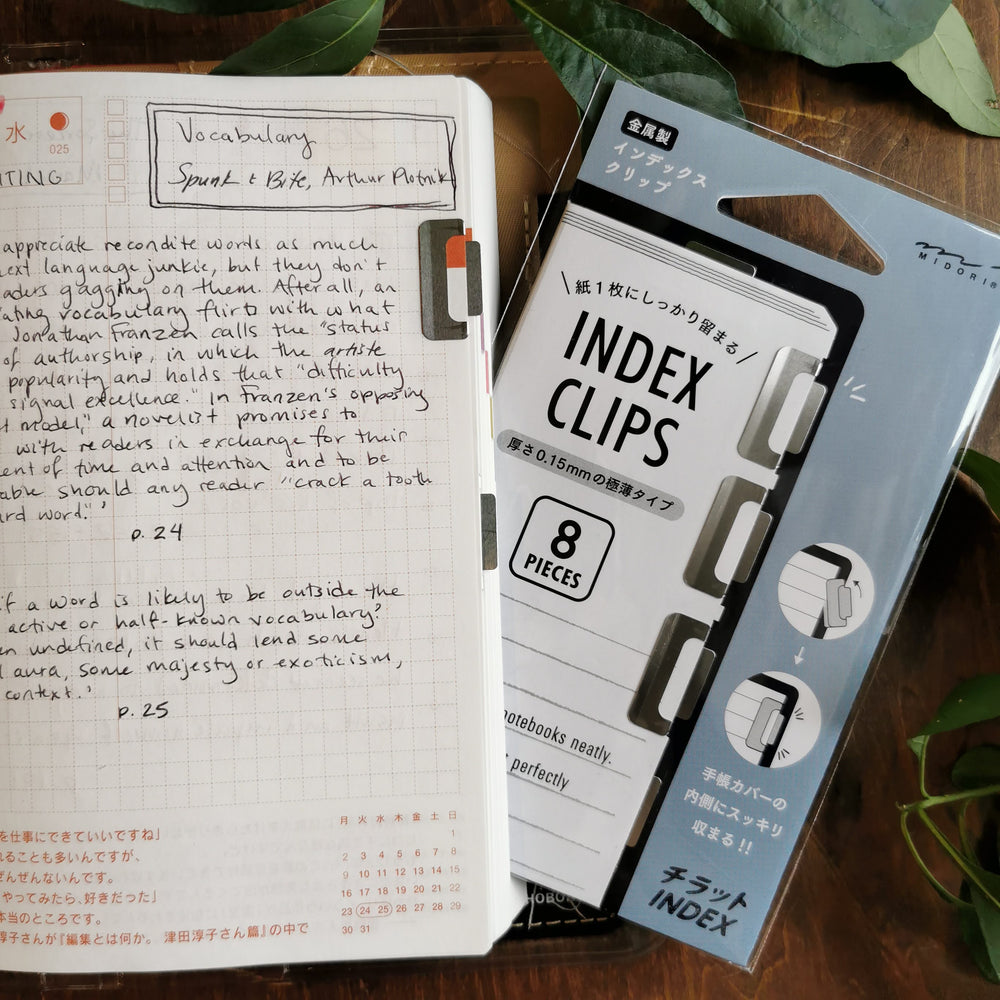 水
025
ITING
Vocabulary
Spunk & Bite, Arthur Plotnik
appreciate recondite words as much
ext language junkie, but they don't
aders gagging on them. After all, an
ating vocabulary flirts with what
Jonathan Franzen calls the "status
of authorship, in which the artiste
popularity and holds that "difficulty
signal excellence." In Franzen's opposing
t model," a novelist promises to
with readers in exchange for their
ent of time and attention and to be
able should any reader "crack a tooth
ard word."'
p. 24
if a word is likely to be outside the
active or half-known vocabulary?
en undefined, it should lend some
l aura, some majesty or exoticism,
context.'
p. 25
を仕事にできていいですね」
れることも多いんですが、
ぜんぜんないんです。
やってみたら、好きだった」
本当のところです。
淳子さんが『編集とは何か。 津田淳子さん篇』の中で
月 火 水 木 金 土 日
1
2 3 4 5 6 7 8
9 10 11 12 13 14 15
16 17 18 19 20 21 22
23 24 25 26 27 28 29
30 31
金属製
インデックス
クリップ
MIDORI®
紙1枚にしっかり留まる
INDEX
CLIPS
厚さ0.15mmの極薄タイプ
8
PIECES
notebooks neatly.
perfectly
手帳カバーの
内側にスッキリ
収まる!!
チラット
INDEX
HOBO